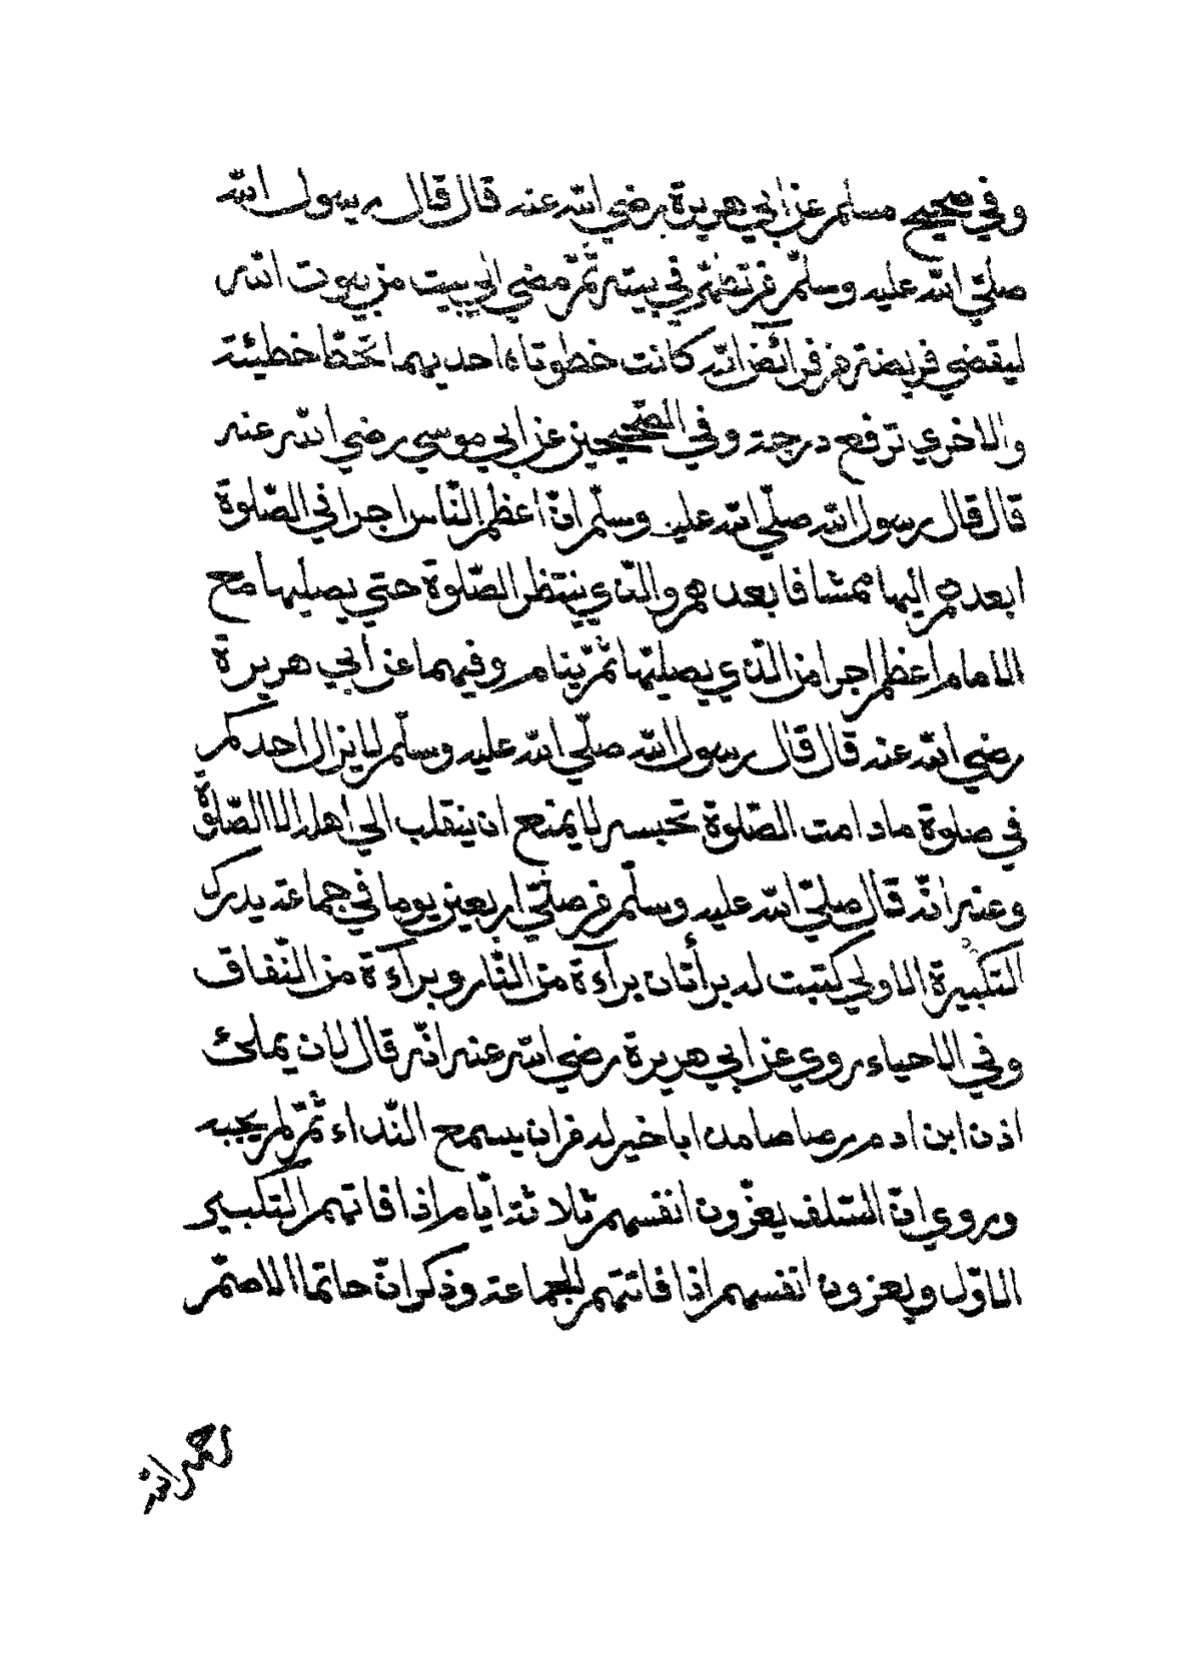 وفي صحيح مسلم عن ابي هريرة رضي الله عنه قال قال رسول الله
صلّي الله عليه وسلّم من تطهّر في بيته ثمّ مضي الي بيت من بيوت الله
ليقضي فريضة من فرآئض الله كانت خطوتاه احديهما تحطّ خطيئة
والاخري ترفع درجة وفي الصّحيحين عن ابي موسي رضي الله عنه
قال قال رسول الله صلّي الله عليه وسلّم انّ اعظم النّاس اجرا في الصّلوة
ابعدهم اليها ممشا فابعدهم والّذي ينتظر الصّلوة حتي يصليها مع
الامام اعظم اجرا من الّذي يصليّها ثمّ ينام وفيهما عن ابي هريرة
رضي الله عنه قال قال رسول الله صلّي الله عليه وسلّم لايزال احدكم
في صلوة مادامت الصّلوة تحبسه لايمنع ان ينقلب الي اهله الا الصّلوة
وعنه انّه قال صلّي الله عليه وسلّم من صلّي اربعين يوما في جماعة يدرك
التكبيرة الاولي كتبت له برأتان برآءة من النّار وبرآءة من النّفاق
وفي الاحياء روي عن ابي هريرة رضي الله عنه انّه قال لان يملئ
اذن ابن ادم رصاصا مدابا خير له من ان يسمع النّداء ثمّ لم يجبه
وروي انّ السّلف يعزّون انفسهم ثلاثة ايّام اذا فاتهم التكبير
الاوّل ويعزون انفسهم اذا فاتتهم للجماعة وذكر انّ حاتما الاصمّ
رحمه الله